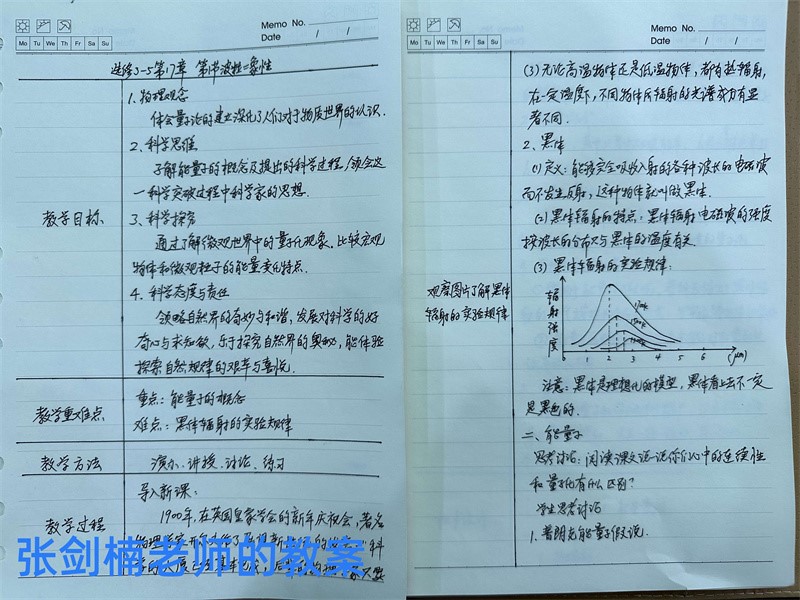 Memo No.
Date / /
Mo Tu We Th Fr Sa Su
选修3-5第17章 第1节 波粒二象性
1. 物理观念
体会量子论的建立深化了人们对于物质世界的认识.
2. 科学思维
了解能量子的概念及提出的科学过程,领会这
一科学突破过程中科学家的思想.
教学目标
3. 科学探究
通过了解微观世界中的量子化现象.比较宏观
物体和微观粒子的能量变化特点.
4. 科学态度与责任
领略自然界的奇妙与和谐,发展对科学的好
奇心与求知欲,乐于探索自然界的奥秘,能体验
探索自然规律的艰辛与喜悦.
教学重难点
重点:能量子的概念
难点:黑体辐射的实验规律
教学方法
演示、讲授、讨论、练习
教学过程
导入新课:
1900年,在英国皇家学会的新年庆祝会,著名
物理学家
张剑楠老师的教案
Memo No.
Date / /
Mo Tu We Th Fr Sa Su
(3)无论高温物体还是低温物体,都有热辐射,
在一定温度下,不同物体所辐射的光谱成分有显
著不同.
2、黑体
(1)定义:能够完全吸收入射的各种波长的电磁波
而不发生反射,这种物体就叫做黑体.
(2)黑体辐射的特点:黑体辐射电磁波的强度
按波长的分布只与黑体的温度有关.
观察图片了解黑体
辐射的实验规律
(3)黑体辐射的实验规律:
辐射强度
0 1 2 3 4 5 6 (μm)
注意:黑体是理想化的模型,黑体看上去不一定
是黑色的.
二、能量子
思考讨论:阅读课文说一说你们心中的连续性
和量子化有什么区别?
学生思考讨论
1. 普朗克能量子假说.